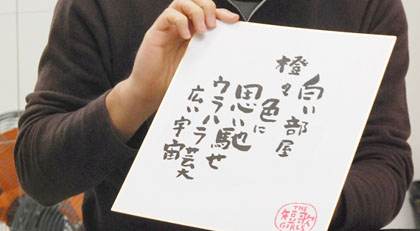 白い部屋
橙色に
思い馳せ
ウラハラ芸大
広い宇宙
THE
短歌
GIRLS